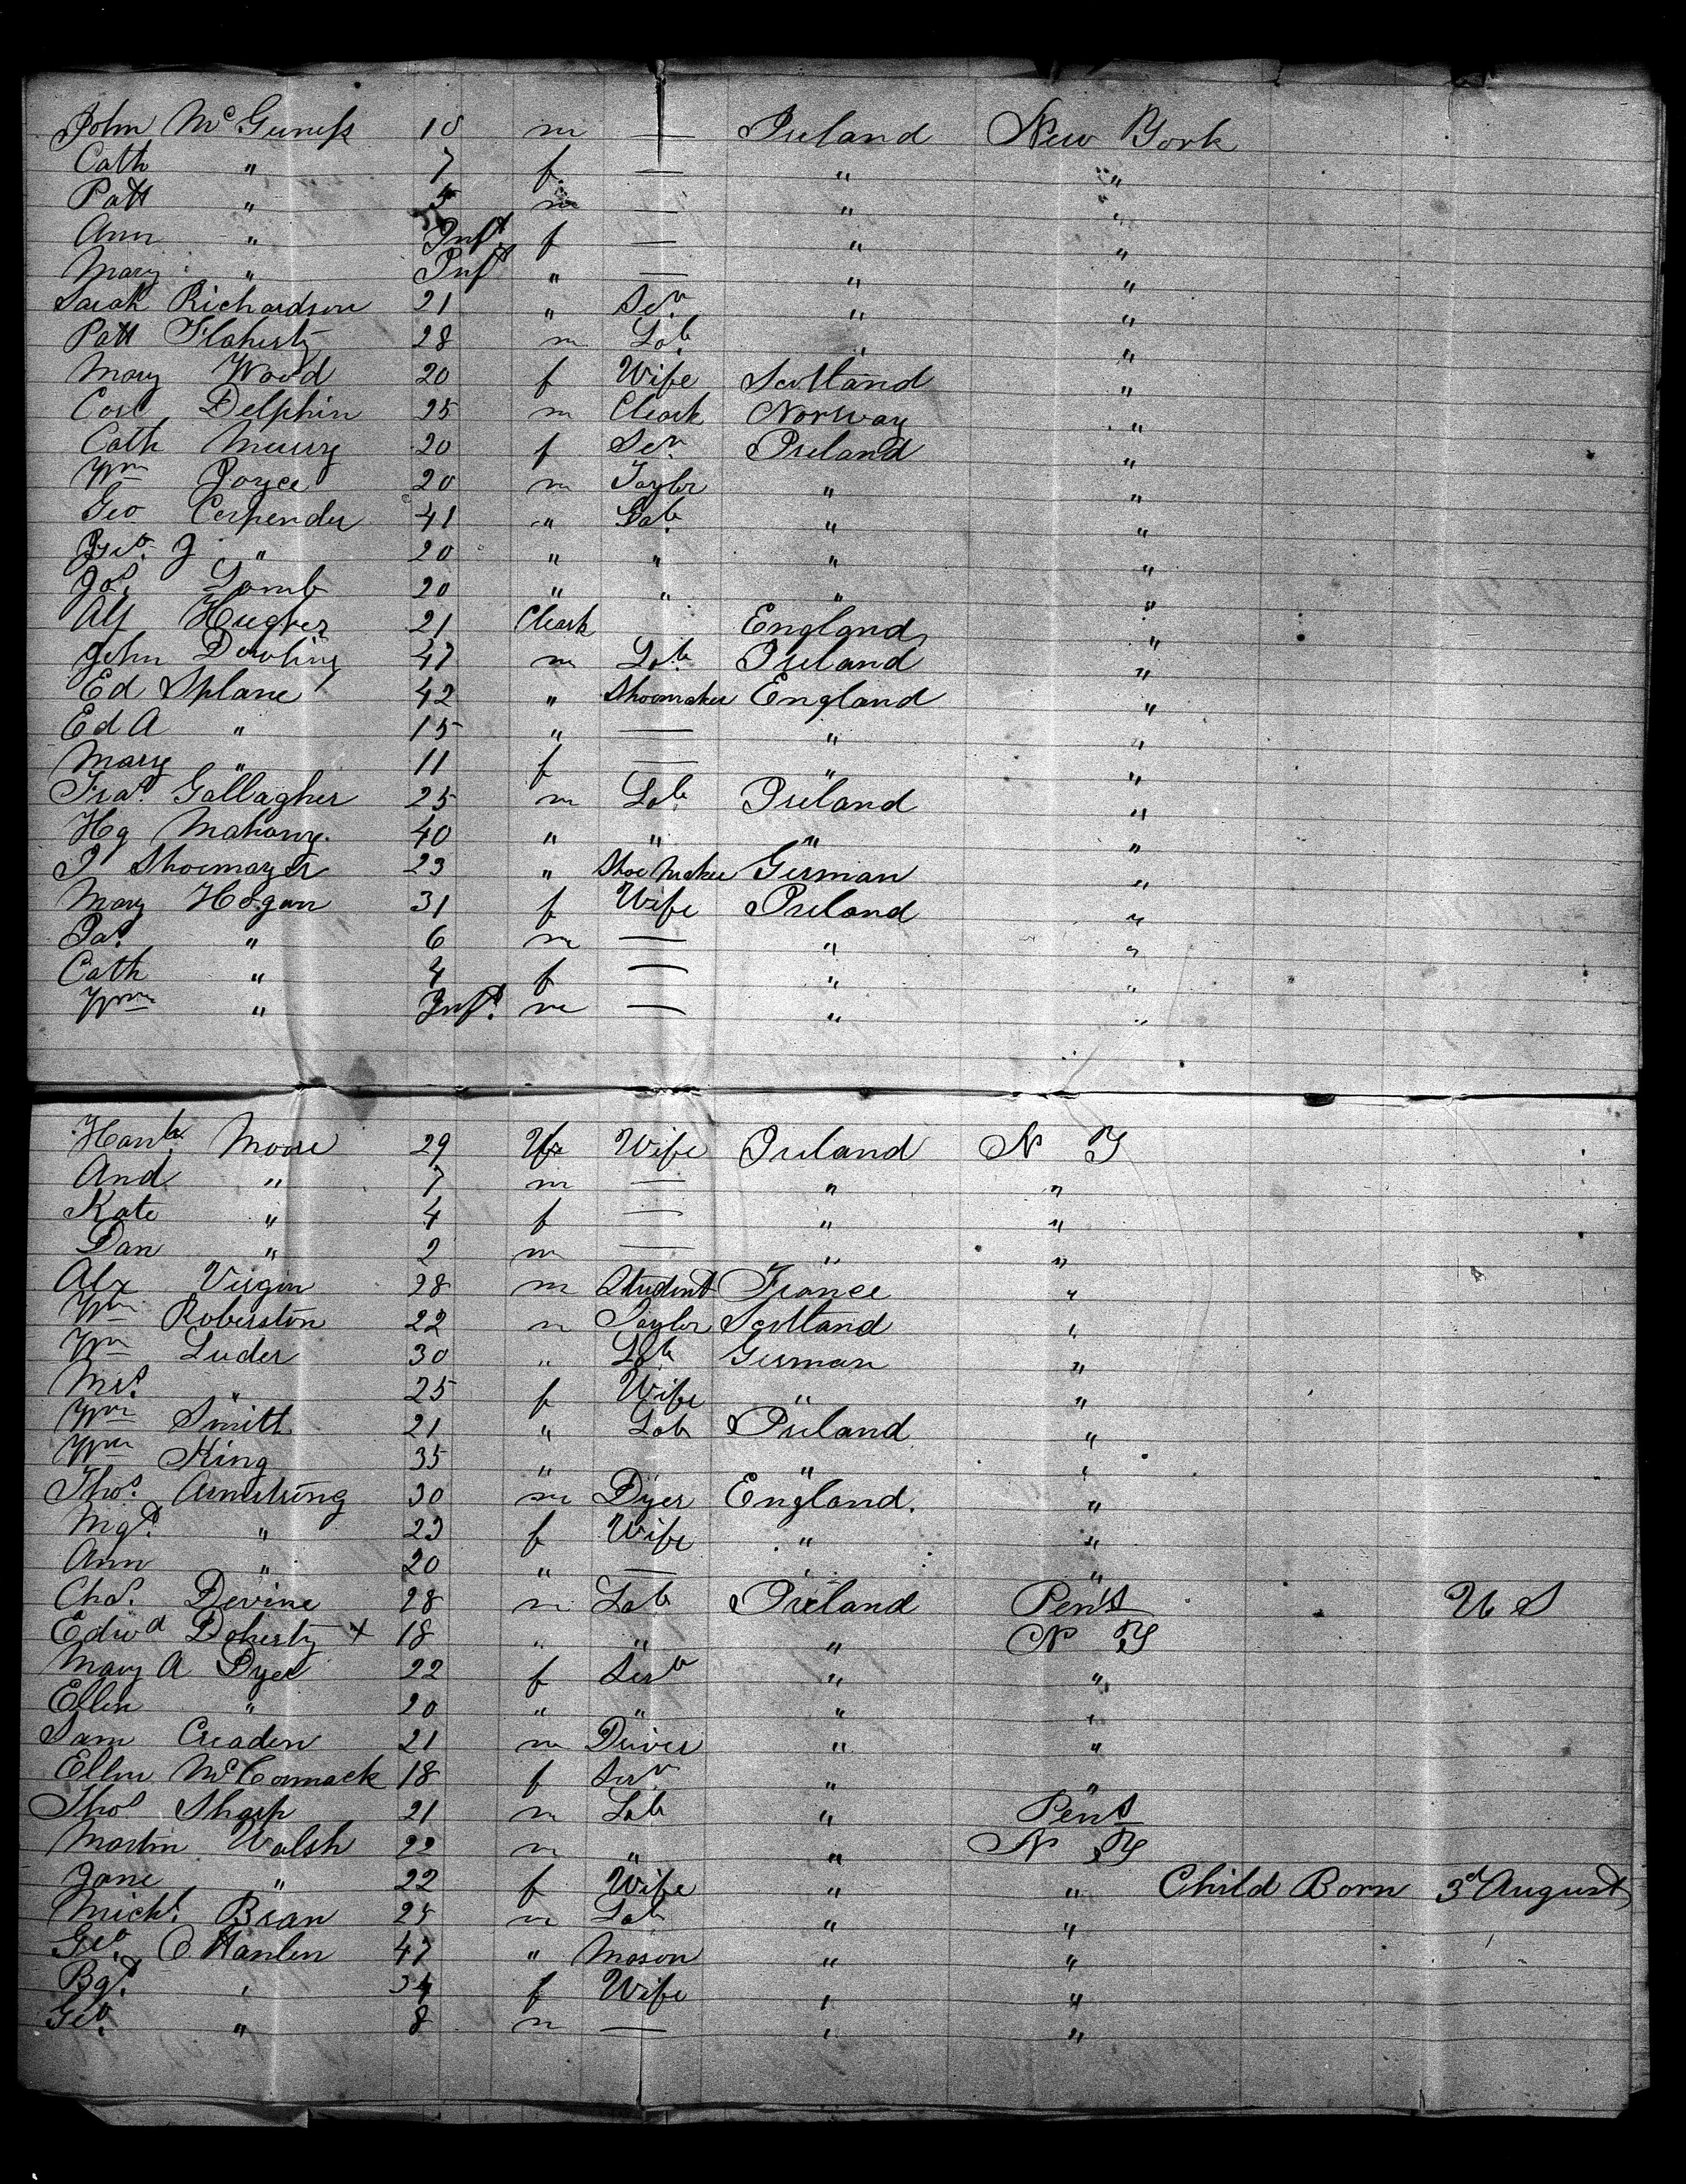 John McGuness 10 m — Ireland New York
Cath " 7 f — " "
Patt " 5 m — " "
Ann " Inft f — " "
Mary " Inft " — " "
Sarah Richardson 21 " Sev " "
Patt Flaherty 28 m Lab " "
Mary Wood 20 f Wife Scotland "
Carl Delphin 25 m Cleark Norway "
Cath Murry 20 f Sev Ireland "
Wm Joyce 20 m Taylor " "
Geo Carpender 41 " Lab " "
Geo. J " 20 " " " "
Jos. Lamb 20 " " " "
Alf Hughes 21 Cleark England "
John Dowling 47 m Lab Ireland "
Ed Splane 42 " Shoemaker England "
Ed A " 15 " — " "
Mary " 11 f — " "
Fras. Gallagher 25 m Lab Ireland "
Hg Mahony. 40 " " " "
J Shoemayer 23 " Shoe Maker German "
Mary Hogan 31 f Wife Ireland "
Jas. " 6 m — " "
Cath " 4 f — " "
Wm " Inft. m — " "
Hanh. Moore 29 Wife Ireland N Y
And " 7 m — " "
Kate " 4 f — " "
Dan " 2 m — " "
Alx Virgin 28 m Student France "
Wm Roberston 22 m Taylor Scotland "
Wm Luder 30 " Lab German "
Mrs. " 25 f Wife " "
Wm Smitt 21 " Lab Ireland "
Wm King 35 " " "
Thos. Armstrong 30 m Dyer England. "
Mgt. " 23 f Wife " "
Ann " 20 " — " "
Chas. Devine 28 m Lab Ireland Pens U S
Edwd Doherty + 18 " " " N Y
Mary A Dyer 22 f Serv " "
Ellen " 20 " " " "
Sam Creaden 21 m Driver " "
Ellen McCormack 18 f Serv " "
Thos Sharp 21 m Lab " Pens
Martin Walsh 22 m " " N Y
Jane " 22 f Wife " " Child Born 3d August
Michl. Bean 25 m Lab " "
Geo. O Hanlen 47 " Mason " "
Bgt. " 34 f Wife " "
Geo. " 8 m — " "